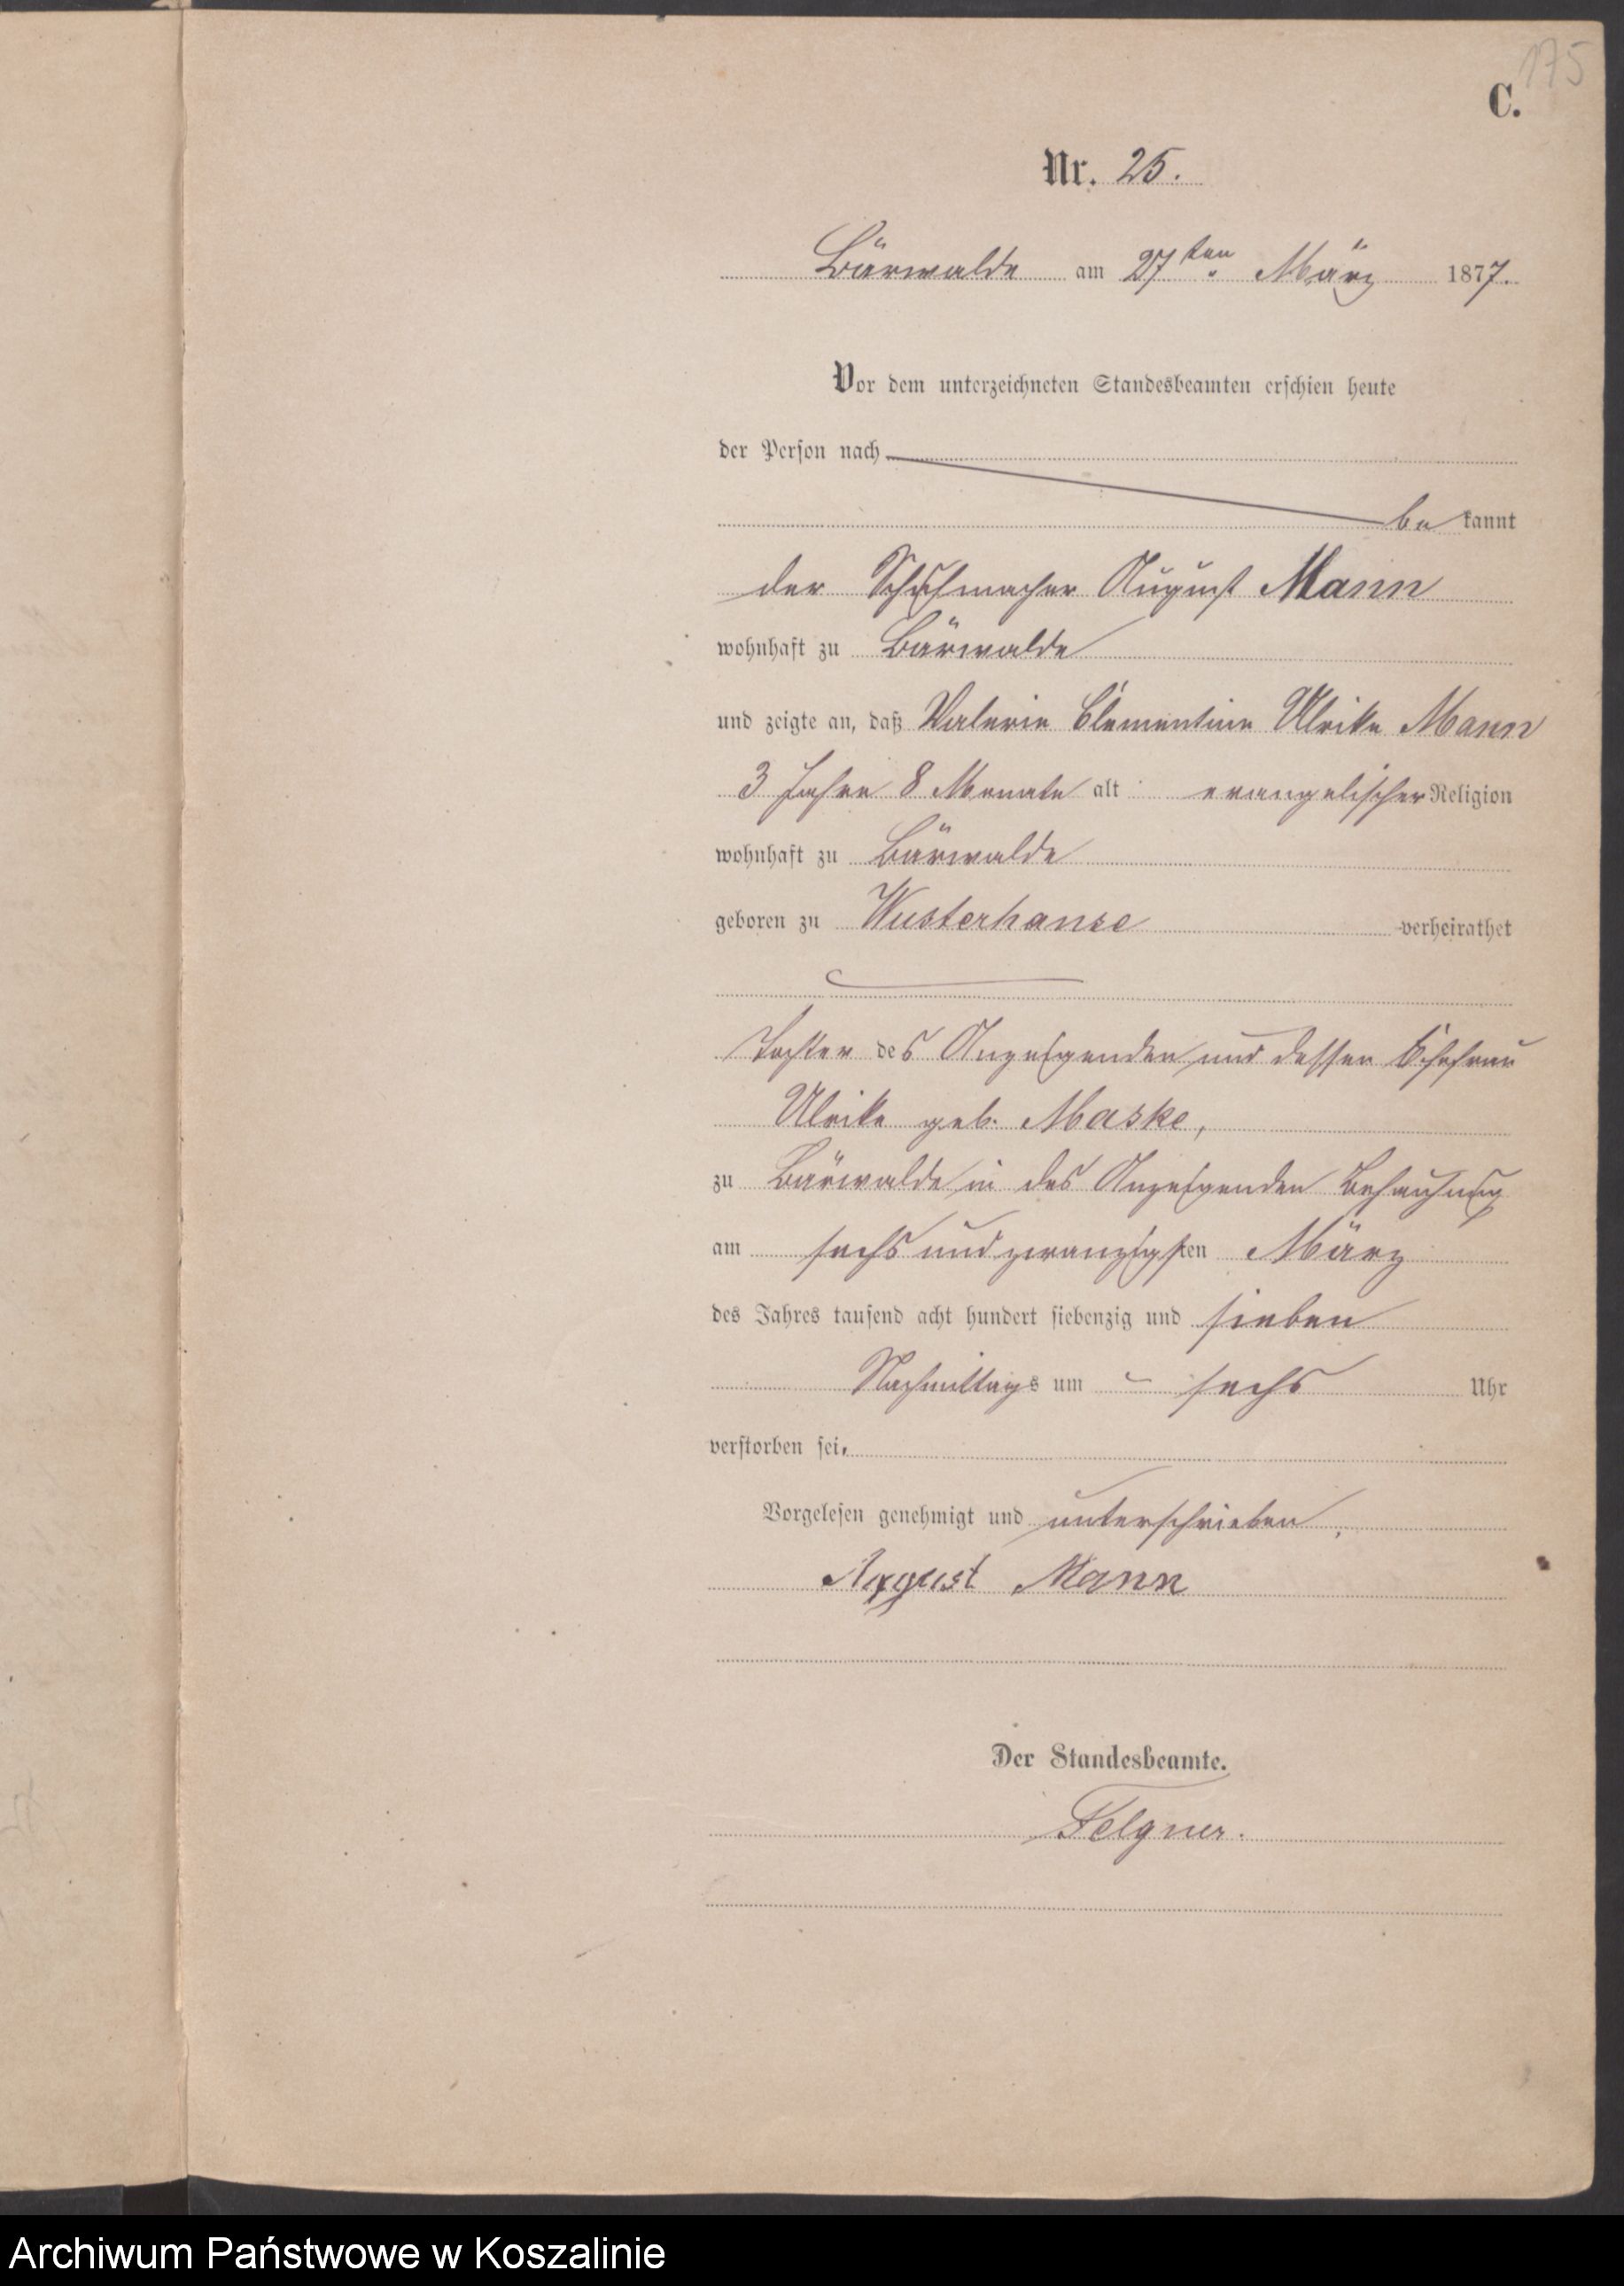 175
C.
Nr. 25.
Bärwalde am 27ten März 1877.
Vor dem unterzeichneten Standesbeamten erschien heute
der Person nach
be kannt
der Schuhmacher August Mann
wohnhaft zu Bärwalde
und zeigte an, daß Valerie Clementine Ulrike Mann
3 Jahre 8 Monate alt evangelischer Religion
wohnhaft zu Bärwalde
geboren zu Wusterhanse verheirathet
Tochter des Anzeigenden und dessen Ehefrau
Ulrike geb. Maske,
zu Bärwalde in des Anzeigenden Behausung
am sechs und zwanzigsten März
des Jahres tausend acht hundert siebenzig und sieben
Nachmittags um sechs Uhr
verstorben sei.
Vorgelesen genehmigt und unterschrieben.
August Mann
Der Standesbeamte.
Felgner.
Archiwum Państwowe w Koszalinie